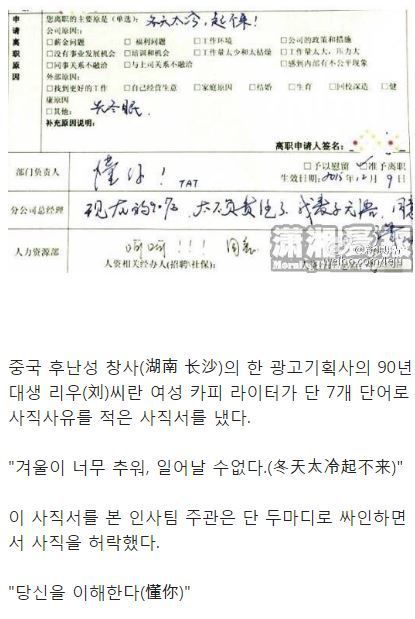 您离职的主要原是(单选): 冬天太冷,起不来!
申请离职原因
公司原因:
□薪金问题 □福利问题 □工作环境 □公司的政策和措施
□没有事业发展机会 □培训和机会 □工作量太少和太枯燥 □工作量太大,压力大
□同事关系不融洽 □与上司关系不融洽 □感到内部有不公平现象
外部原因:
□找到更好的工作 □自己经营生意 □家庭原因 □结婚 □生育 □回校深造 □健
康原因
□其他:
补充原因说明:
离职申请人签名:
部门负责人 懂你! TAT □予以慰留 □准予离职
生效日期: 2015 12月9日
分公司总经理 现在的90后,太不负责任了
人力资源部 呵呵!!!
人资相关经办人(招聘\社保):
중국 후난성 창사(湖南 长沙)의 한 광고기획사의 90년
대생 리우(刘)씨란 여성 카피 라이터가 단 7개 단어로
사직사유를 적은 사직서를 냈다.
"겨울이 너무 추워, 일어날 수없다.(冬天太冷起不来)"
이 사직서를 본 인사팀 주관은 단 두마디로 싸인하면
서 사직을 허락했다.
"당신을 이해한다(懂你)"